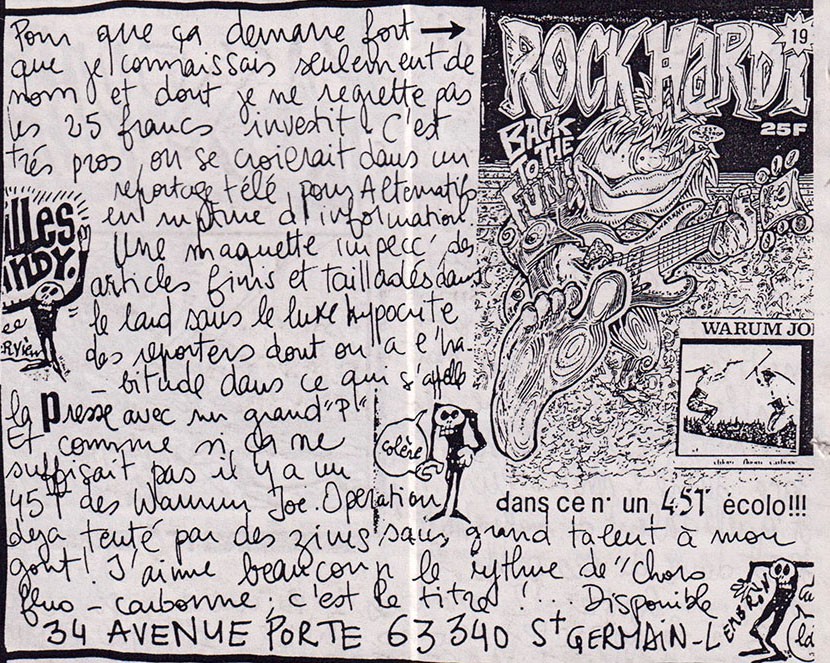 Pour que ça demarre fort →
que je connaissais seulement de
nom et dont je ne regrette pas
les 25 francs investit. C'est
très pros, on se croierait dans un
reportage télé pour Alternatifs
en rupture d'information
Une maquette impecc', des
articles finis et tailladés dans
le lard sans le luxe hypocrite
des reporters dont on a l'ha-
bitude dans ce qui s'appelle
la presse avec un grand "P"
Et comme si ça ne
suffisait pas il y a un
45T des Warum Joe. Operation
deja tenté par des zines sans grand talent à mon
gout! J'aime beaucoup le rythme de "Choro
fluo-carbonne; c'est le titre!... Disponible
34 AVENUE PORTE 63 340 St GERMAIN-L
ILLES
ANDY.
colère
ROCK HARDI
19
25F
BACK
TO THE
FUN!
WARUM JO
dans ce n° un 45T écolo!!!
EMBRYON